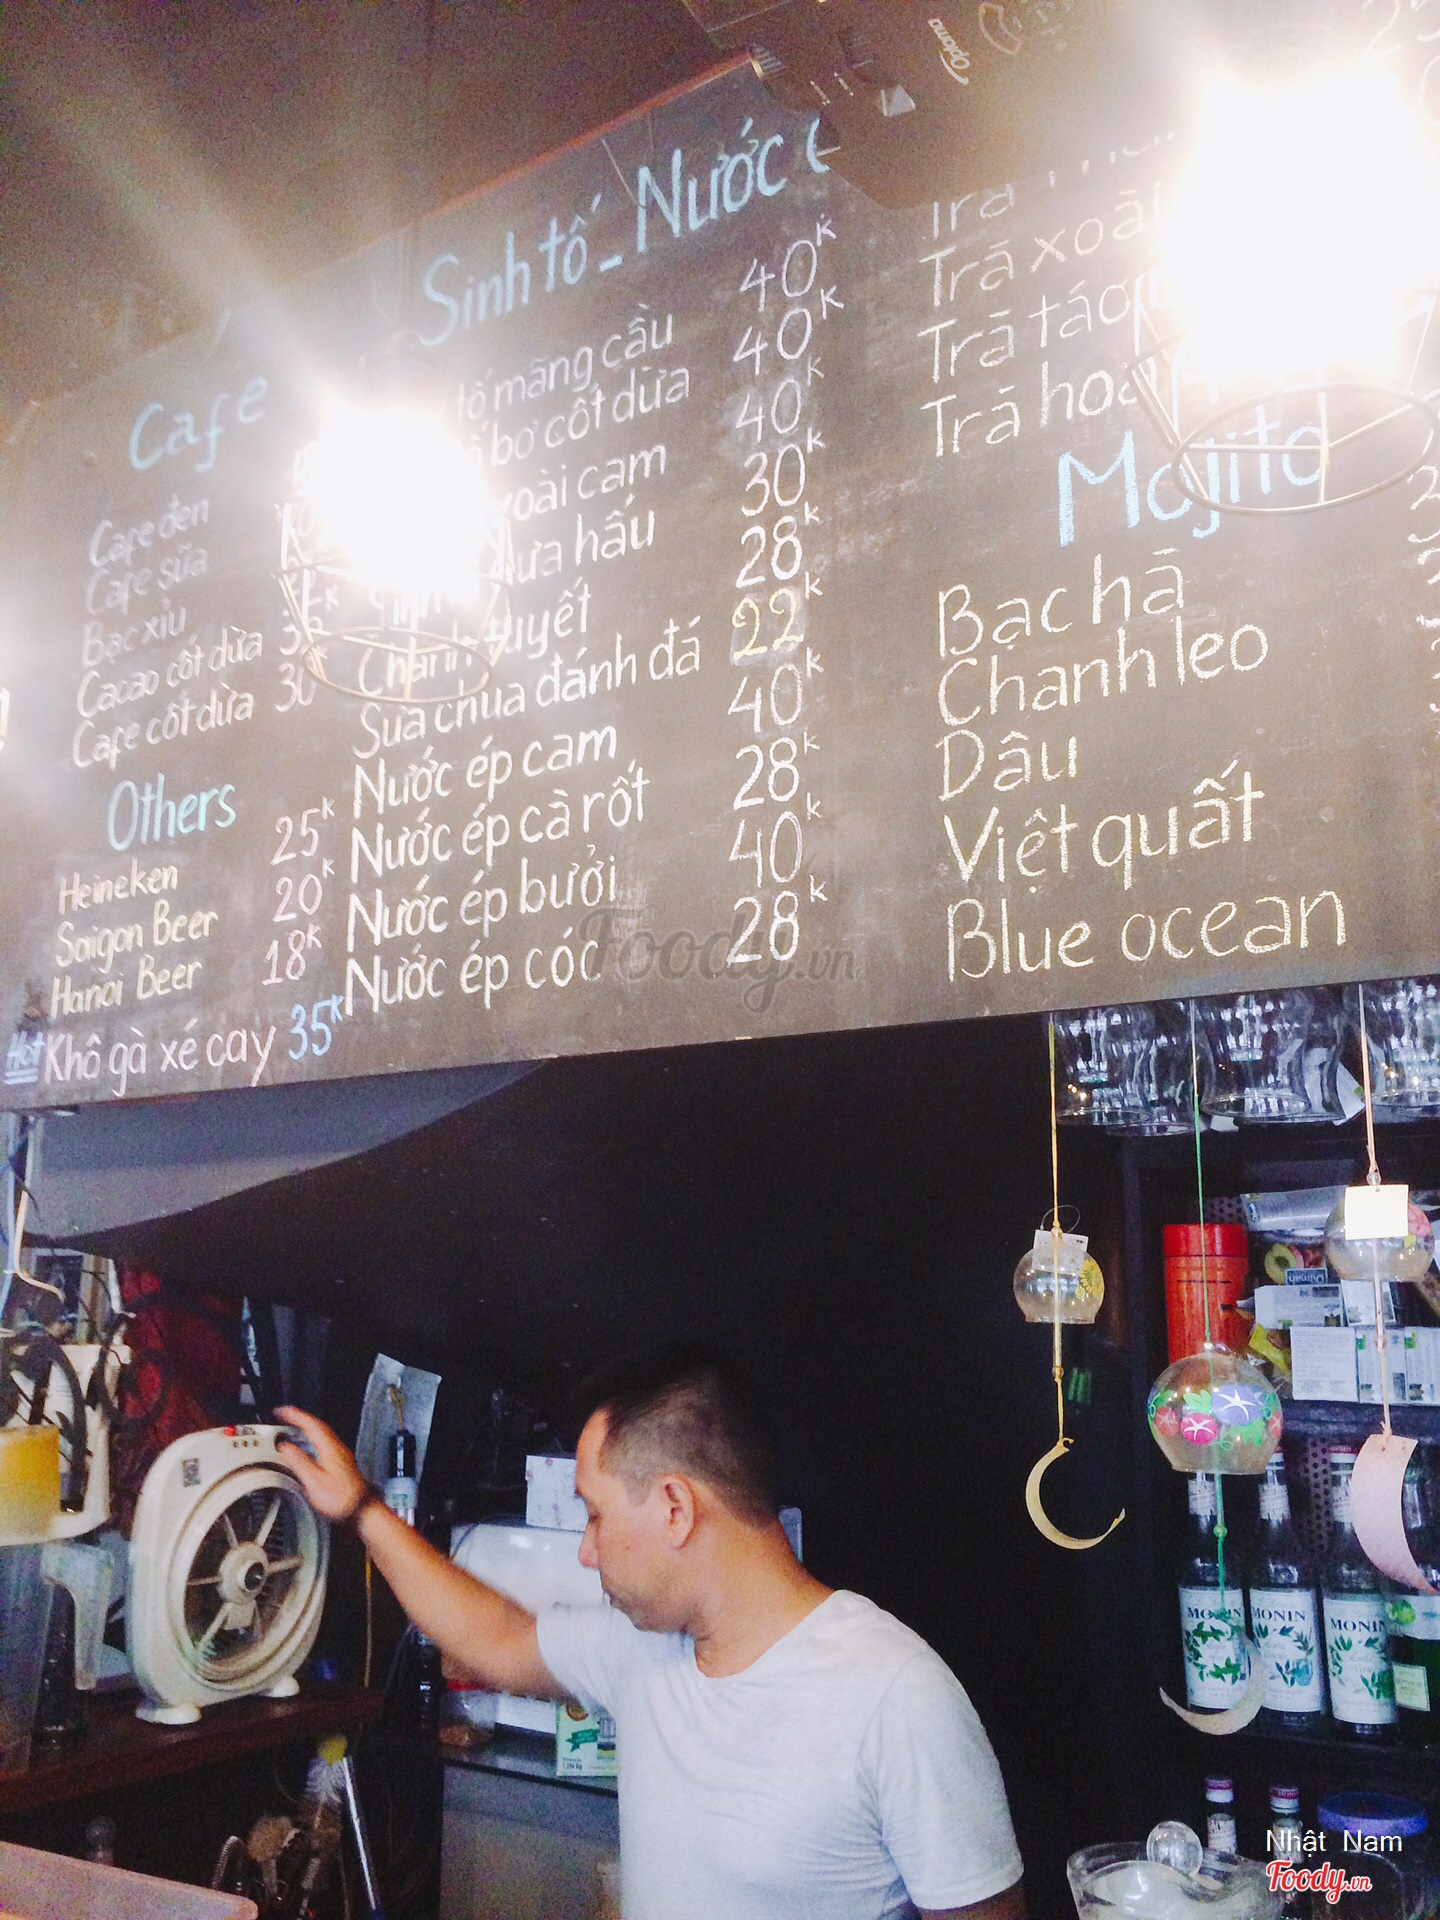 Cafe
Cafe đen
Cafe sữa
Bạc xỉu
Cacao cốt dừa 35K
Cafe cốt dừa 30K
Others
Heineken 25K
Saigon Beer 20K
Hanoi Beer 18K
Hot Khô gà xé cay 35K
Sinh tố - Nước
tố mãng cầu 40K
bơ cốt dừa 40K
xoài cam 40K
dưa hấu 30K
Chanh tuyết 28K
Sữa chua đánh đá 22K
Nước ép cam 40K
Nước ép cà rốt 28K
Nước ép bưởi 40K
Nước ép cóc 28K
Trà
Trà xoài
Trà táo
Trà hoa
Mojito
Bạc hà
Chanh leo
Dâu
Việt quất
Blue ocean
Optoma
Foody.vn
MONIN
MONIN
MONIN
Nhật Nam
Foody.vn